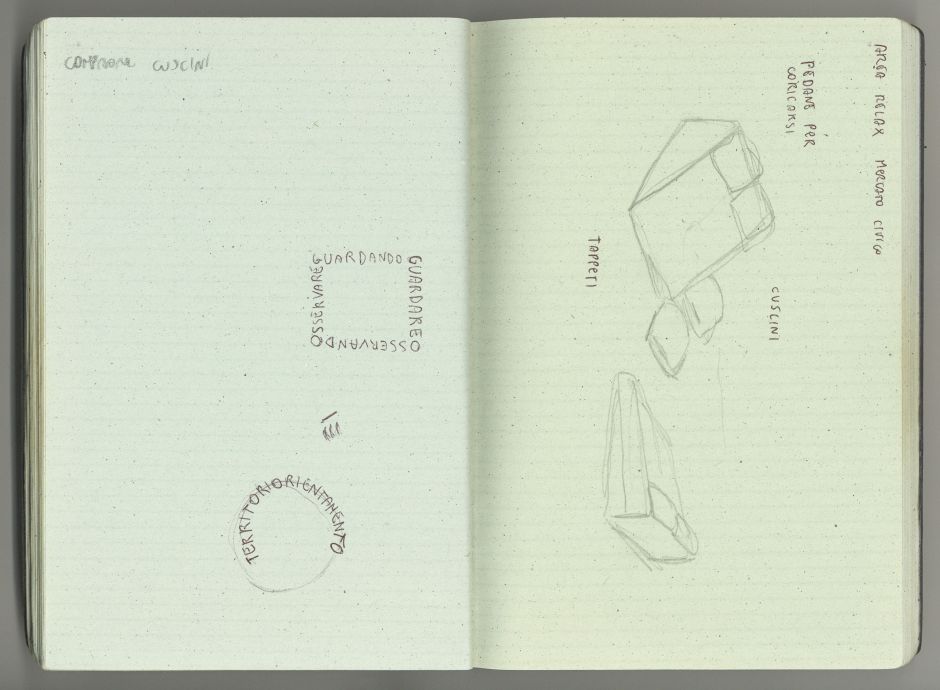 COMPRARE CUSCINI
GUARDANDO
GUARDARE
OSSERVANDO
OSSERVARE
TERRITORIORIENTAMENTO
AREA RELAX MERCATO CIVICO
PEDANE PER
CORICARSI
TAPPETI
CUSCINI